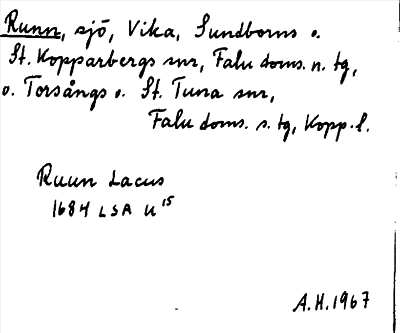 Runn, sjö, Vika, Sundborns o.
St. Kopparbergs snr, Falu doms. n. tg,
o. Torsångs o. St. Tuna snr,
Falu doms. s. tg, Kopp. l.
Ruun Lacus
1684 LSA U 15
A.H. 1967